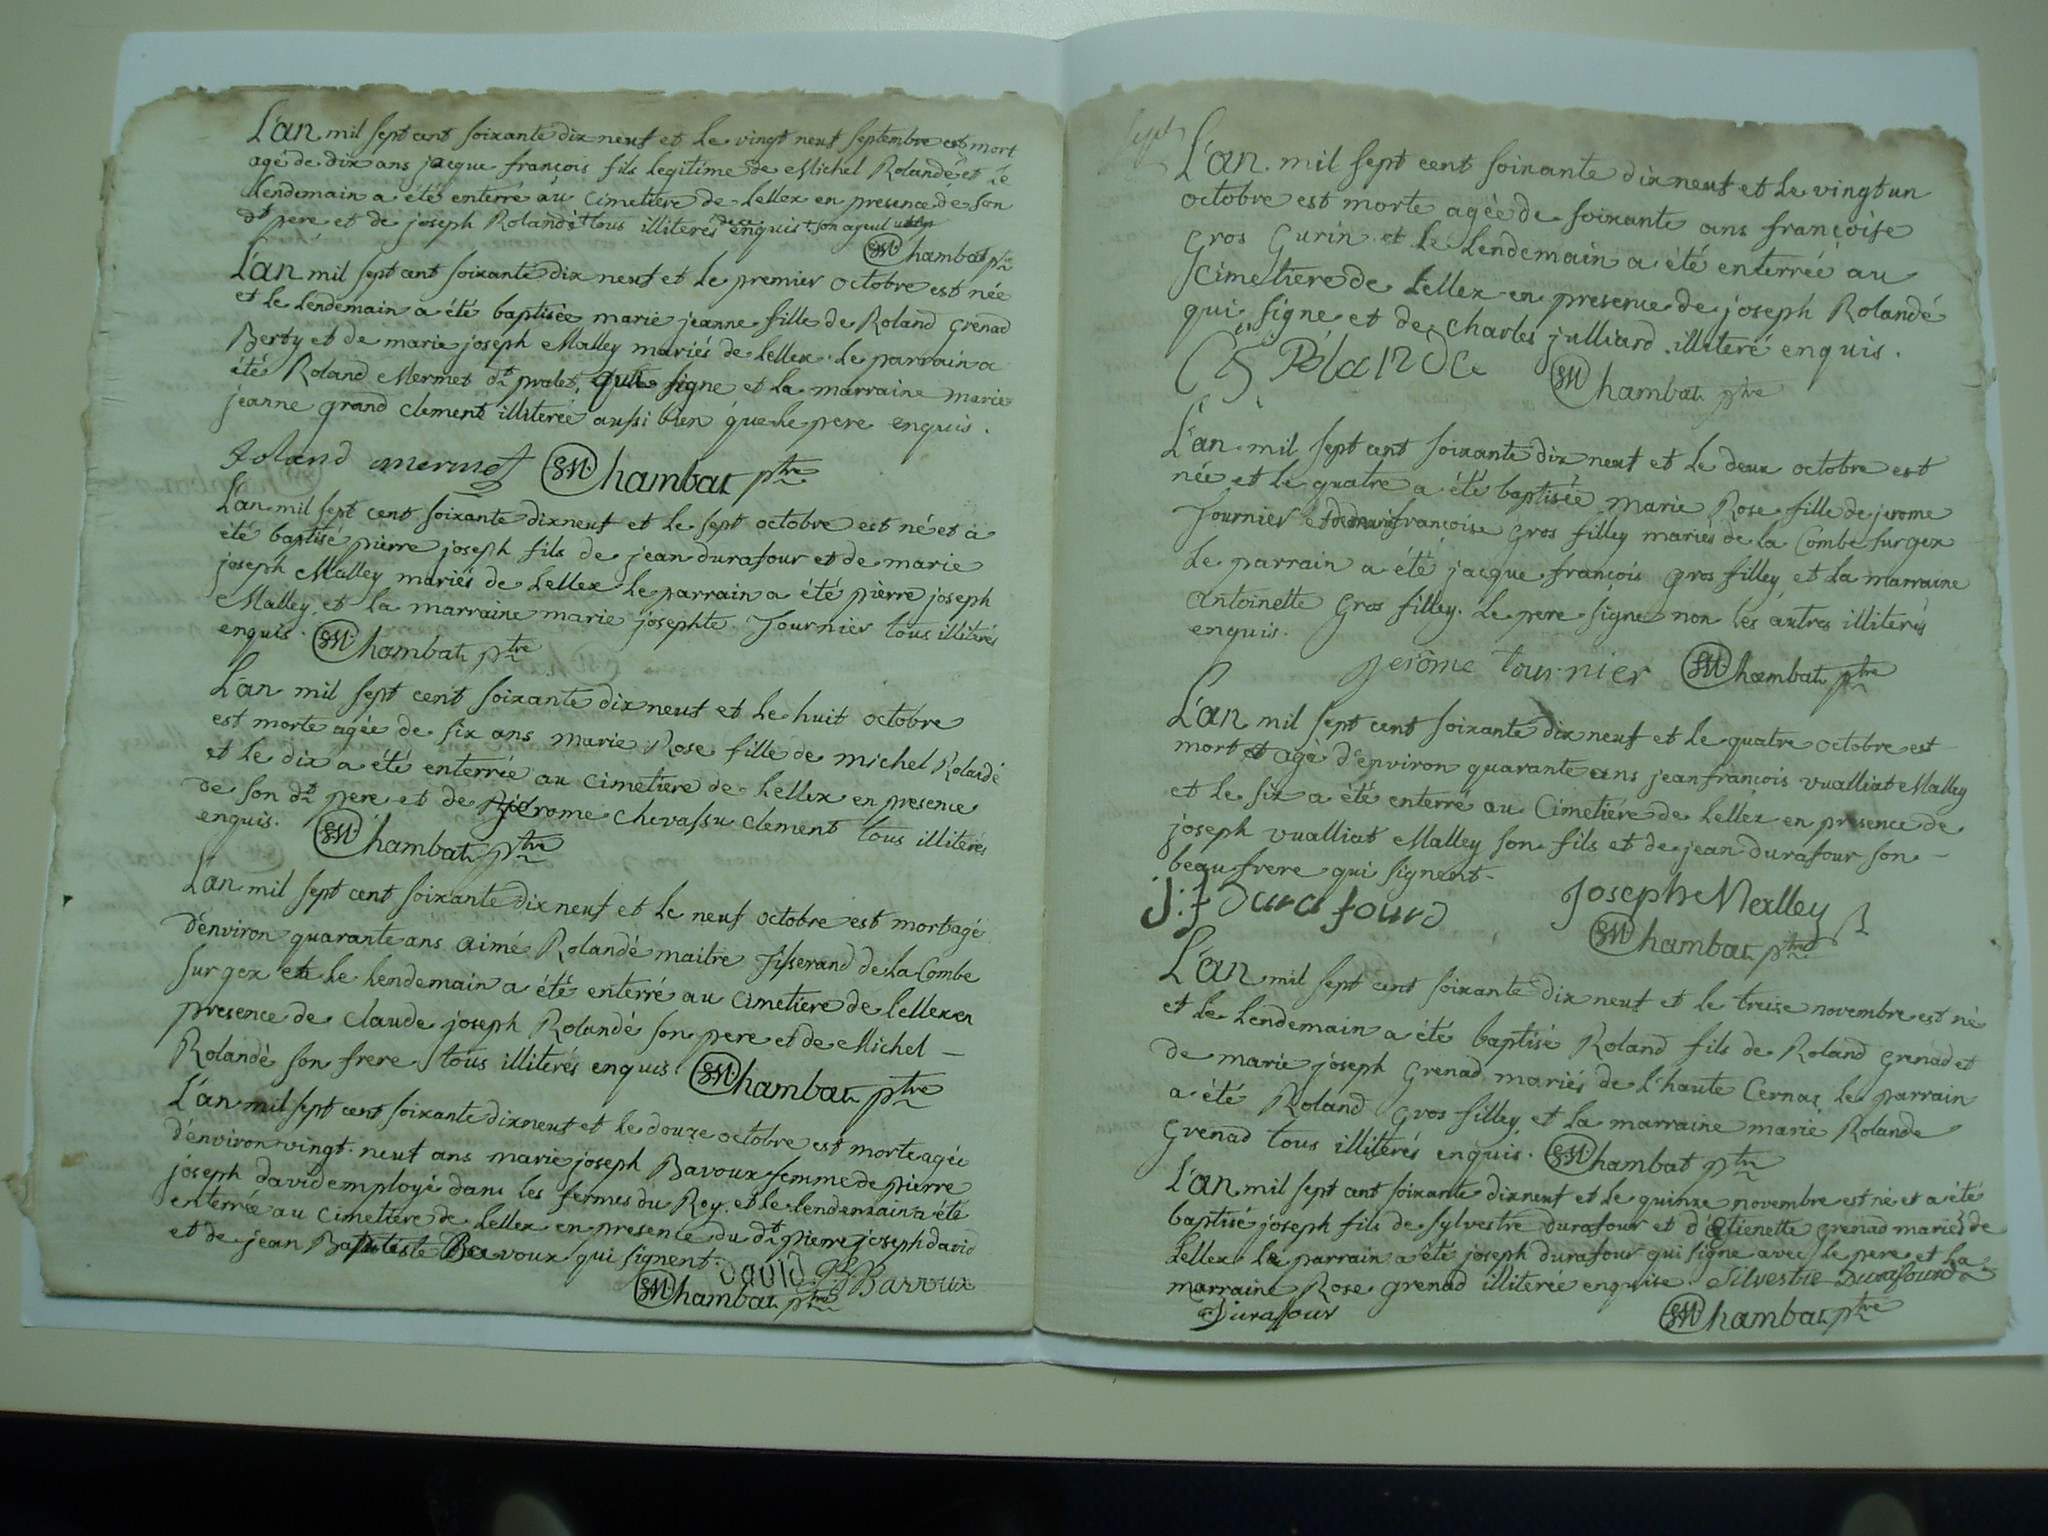 L'an mil sept cent soixante dix neuf et le vingt neuf septembre est mort
agé de dix ans jacque françois fils legitime de Michel Rolandé et le
lendemain a été enterré au cimetiere de Lellex en presence de son
dt pere et de joseph Rolandé + tous illiterés de ce enquis + son ayeul
Chambat ptre
L'an mil sept cent soixante dix neuf et le premier octobre est née
et le lendemain a été baptisée marie jeanne fille de Roland Grenad
Berty et de marie joseph Malley mariés de Lellex. Le parrain a
été Roland Mermet dt pralet, qui signe et la marraine marie
jeanne grand clement illiterée aussi bien que le pere enquis.
Roland mermet Chambat ptre
L'an mil sept cent soixante dix neuf et le sept octobre est né et a
été baptisé pierre joseph fils de jean durafour et de marie
joseph Malley mariés de Lellex le parrain a été pierre joseph
Malley, et la marraine marie josephte Tournier tous illiterés
enquis. Chambat ptre
L'an mil sept cent soixante dix neuf et le huit octobre
est morte agée de six ans marie Rose fille de michel Rolandé
et le dix a été enterrée au cimetiere de Lellex en presence
de son dt pere et de jerome chevassu clement tous illiterés
enquis. Chambat ptre
L'an mil sept cent soixante dix neuf et le neuf octobre est mort agé
d'environ quarante ans aimé Rolandé maitre Tisserand de la Combe
sur gex et le lendemain a été enterré au cimetiere de lellex en
presence de claude joseph Rolandé son pere et de Michel –
Rolandé son frere tous illiterés enquis. Chambat ptre
L'an mil sept cent soixante dix neuf et le douze octobre est morte agée
d'environ vingt-neuf ans marie joseph Bavoux femme de pierre
joseph david employé dans les fermes du Roy, et le lendemain a été
enterrée au cimetiere de Lellex en presence du dt pierre joseph david
et de jean Baptiste Bavoux qui signent.
david Bavoux
Chambat ptre
L'an mil sept cent soixante dix neuf et le vingt un
octobre est morte agée de soixante ans françoise
Gros Gurin et le lendemain a été enterrée au
cimetiere de Lellex en presence de joseph Rolandé
qui signe et de charles julliard illiteré enquis.
Rolande Chambat ptre
L'an mil sept cent soixante dix neuf et le deux octobre est
née et le quatre a été baptisée marie Rose fille de jerome
Tournier et de françoise Gros filley mariés de la Combe sur gex
Le parrain a été jacque françois gros filley, et la marraine
antoinette Gros filley. Le pere signe non les autres illiterés
enquis.
jerôme tournier Chambat ptre
L'an mil sept cent soixante dix neuf et le quatre octobre est
mort agé d'environ quarante ans jean françois vualliat Malley
et le six a été enterré au Cimetiére de Lellex en presence de
joseph vualliat Malley son fils et de jean durafour son –
beau frere qui signent.
j.f Durafourd Joseph Malley
Chambat ptre
L'an mil sept cent soixante dix neuf et le treise novembre est né
et le lendemain a été baptisé Roland fils de Roland grenad et
de marie joseph Grenad mariés de l'haute Cernaz le parrain
a été Roland Gros filley, et la marraine marie Rolande
Grenad tous illiterés enquis. Chambat ptre
L'an mil sept cent soixante dix neuf et le quinze novembre est né et a été
baptisé joseph fils de Sylvestre durafour et d'étienette grenad mariés de
Lellex le parrain a été joseph durafour qui signe avec le pere et la
marraine Rose grenad illiterée enquise. Silvestre Durafourd
Durafour Chambat ptre